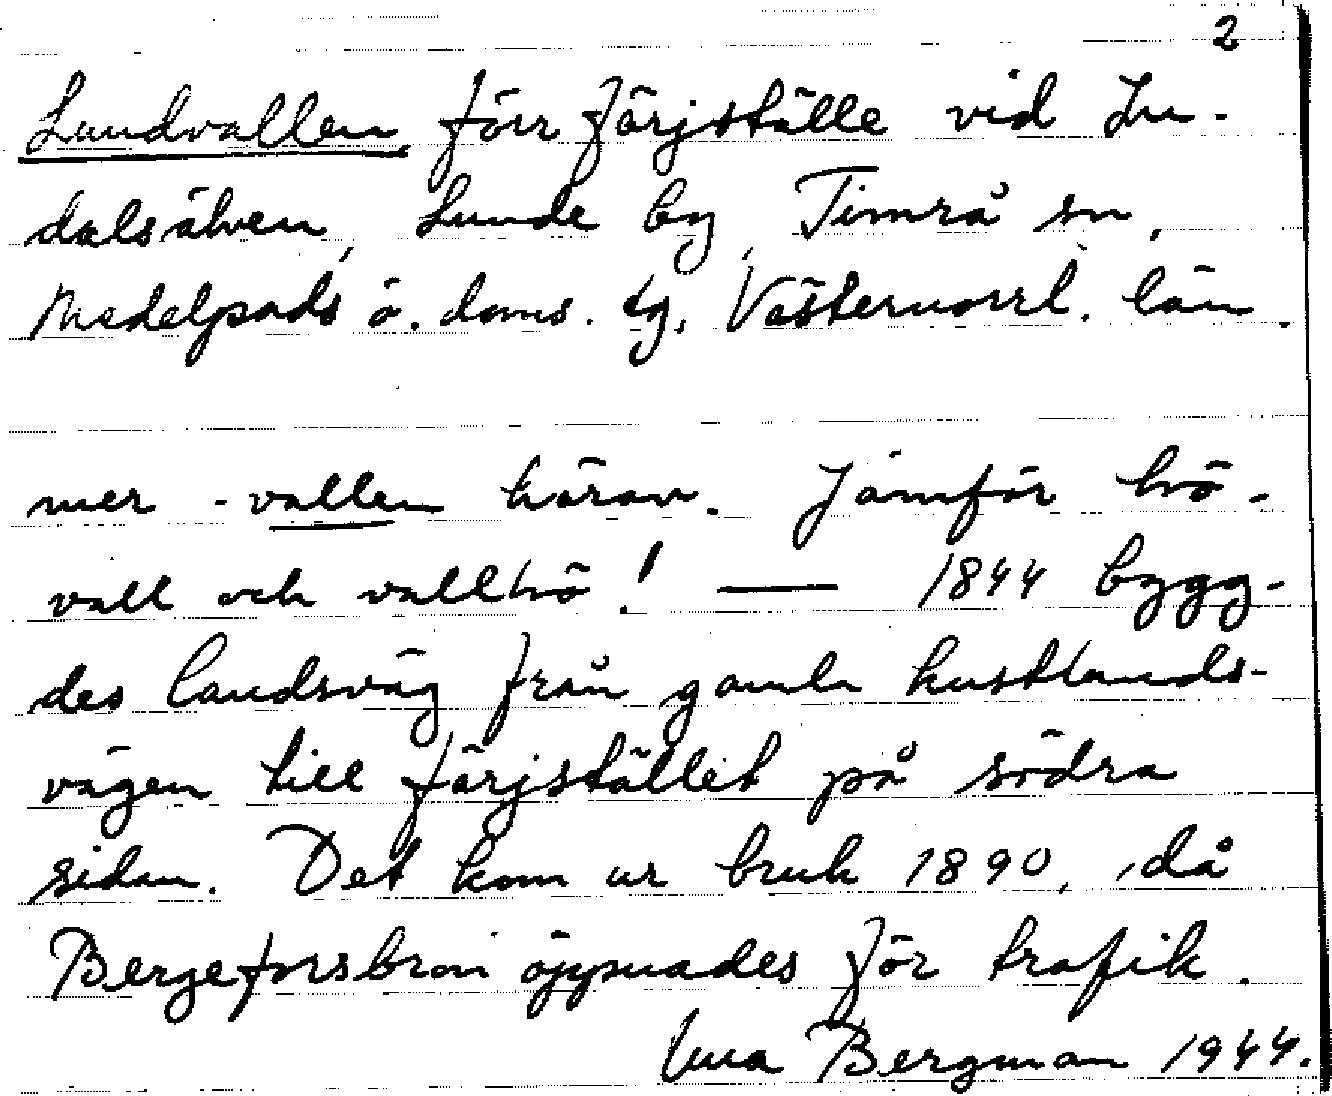 2
Lundvallen, förr färjställe vid In-
dalsälven, Lunde by, Timrå sn,
Medelpads ö. doms. tg, Västernorrl. län.
mer -vallen härav. Jämför hö-
vall och vallhö! — 1844 bygg-
des landsväg från gamla kustlands-
vägen till färjstället på södra
sidan. Det kom ur bruk 1890, då
Bergeforsbron öppnades för trafik.
Bergman 1944.